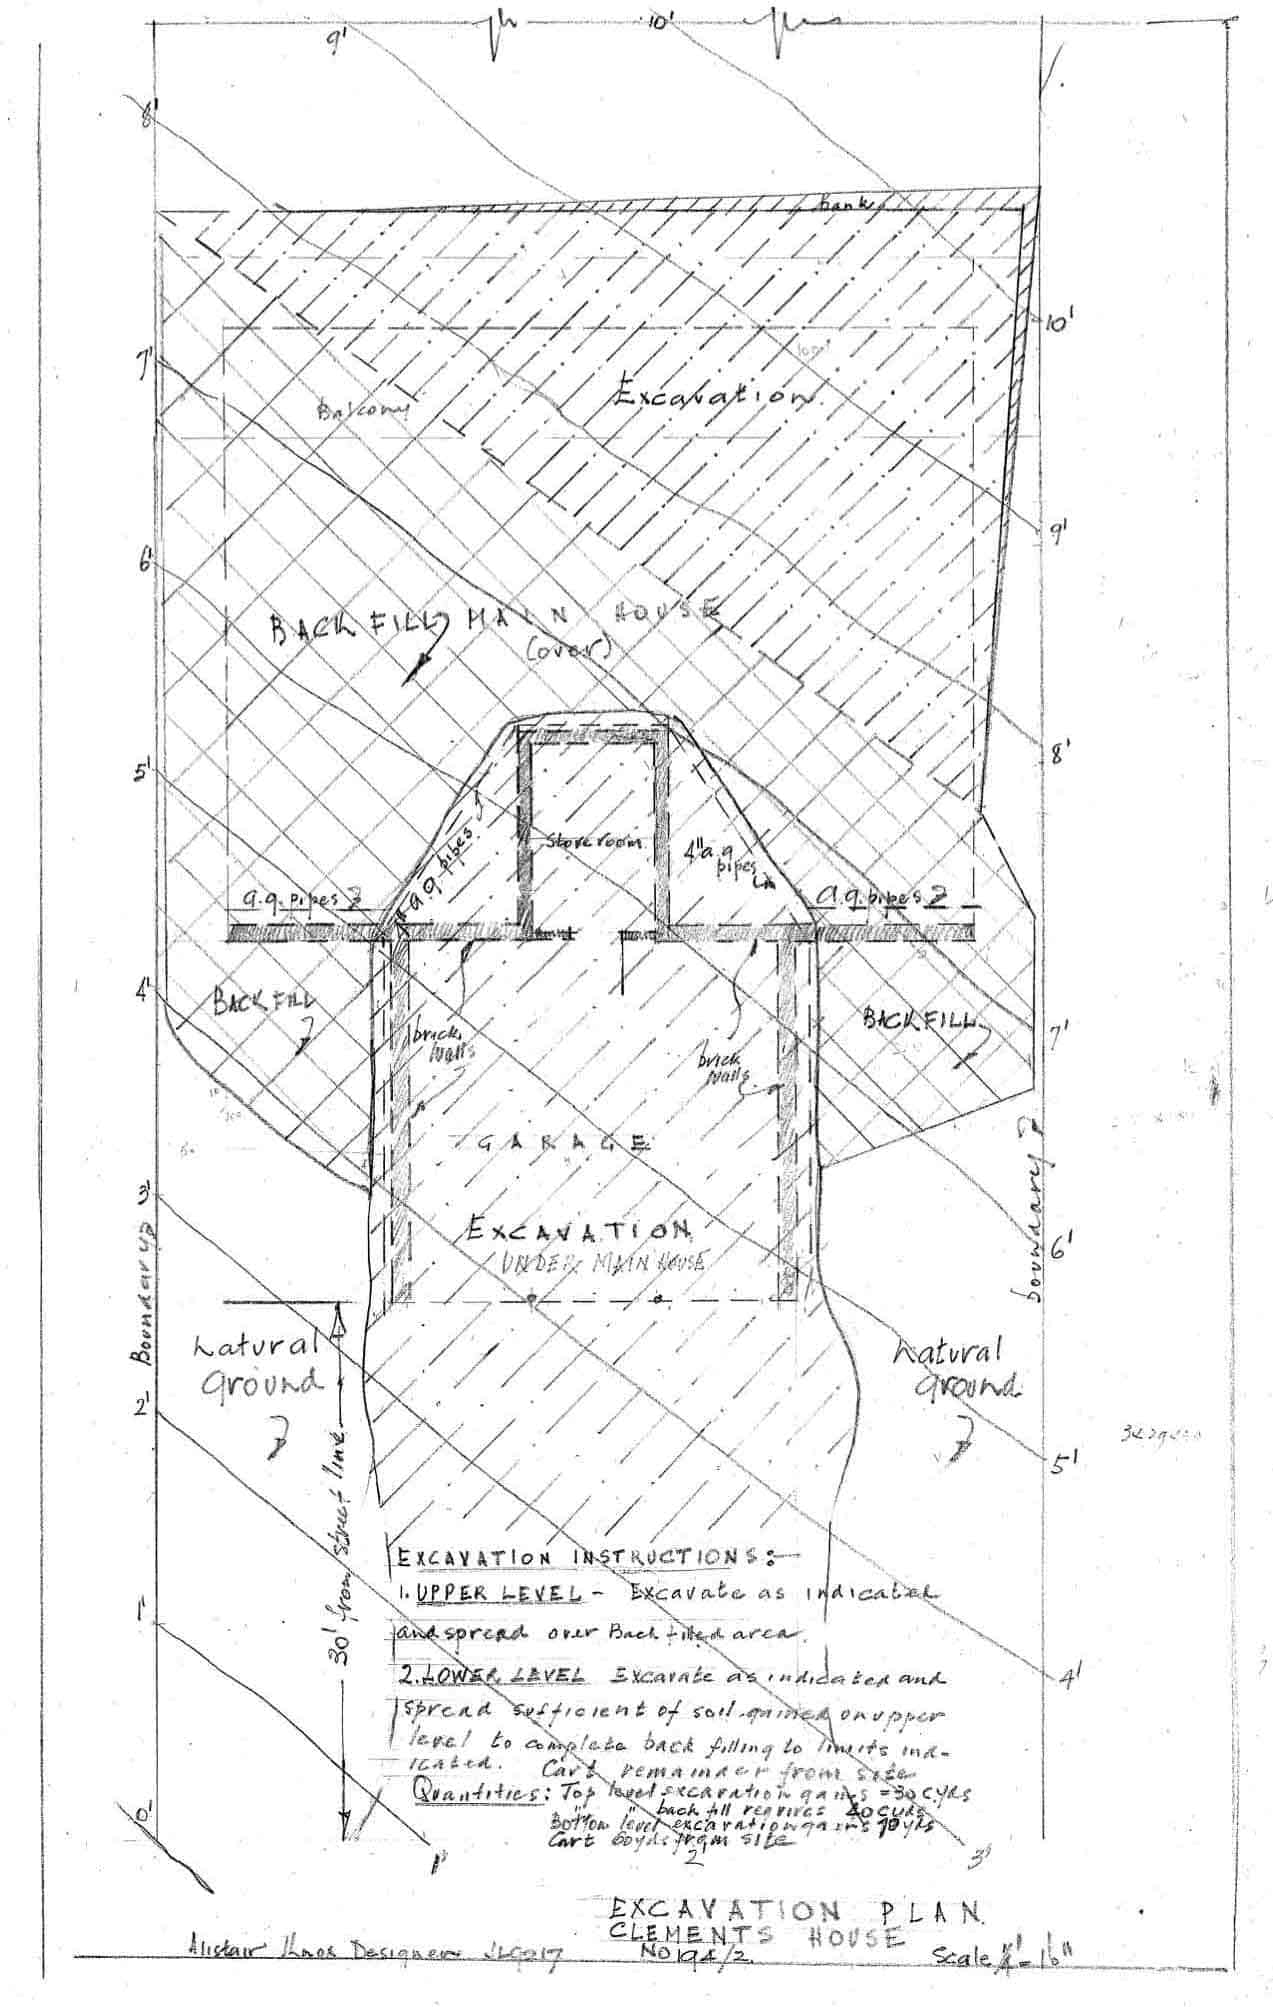 9'
10'
8'
bank
10'
7'
Excavation.
Balcony
9'
6'
BACK FILL MAIN HOUSE
(over)
8'
5'
Storeroom
4" a.g. pipes
4" a.g.
pipes
a.g. pipes
a.g. pipes
4'
BACK FILL
BACK FILL
7'
brick
walls
brick
walls
GARAGE
boundary
3'
EXCAVATION
UNDER MAIN HOUSE
6'
Boundary
natural
ground
natural
ground
2'
5'
30' from street line
EXCAVATION INSTRUCTIONS:—
1. UPPER LEVEL – Excavate as indicated
and spread over Back filled area.
1'
2. LOWER LEVEL Excavate as indicated and
4'
spread sufficient of soil gained on upper
level to complete back filling to limits ind-
icated. Cart remainder from site
Quantities: Top level excavation gains = 30 c.yds
back fill requires 40 c yds
0'
Bottom level excavation gains 70 yds
Cart 60 yds from site
1'
2'
3'
EXCAVATION PLAN.
CLEMENTS HOUSE
Alistair Knox Designer JL9217
NO 194/2.
Scale ¼" = 1'0"